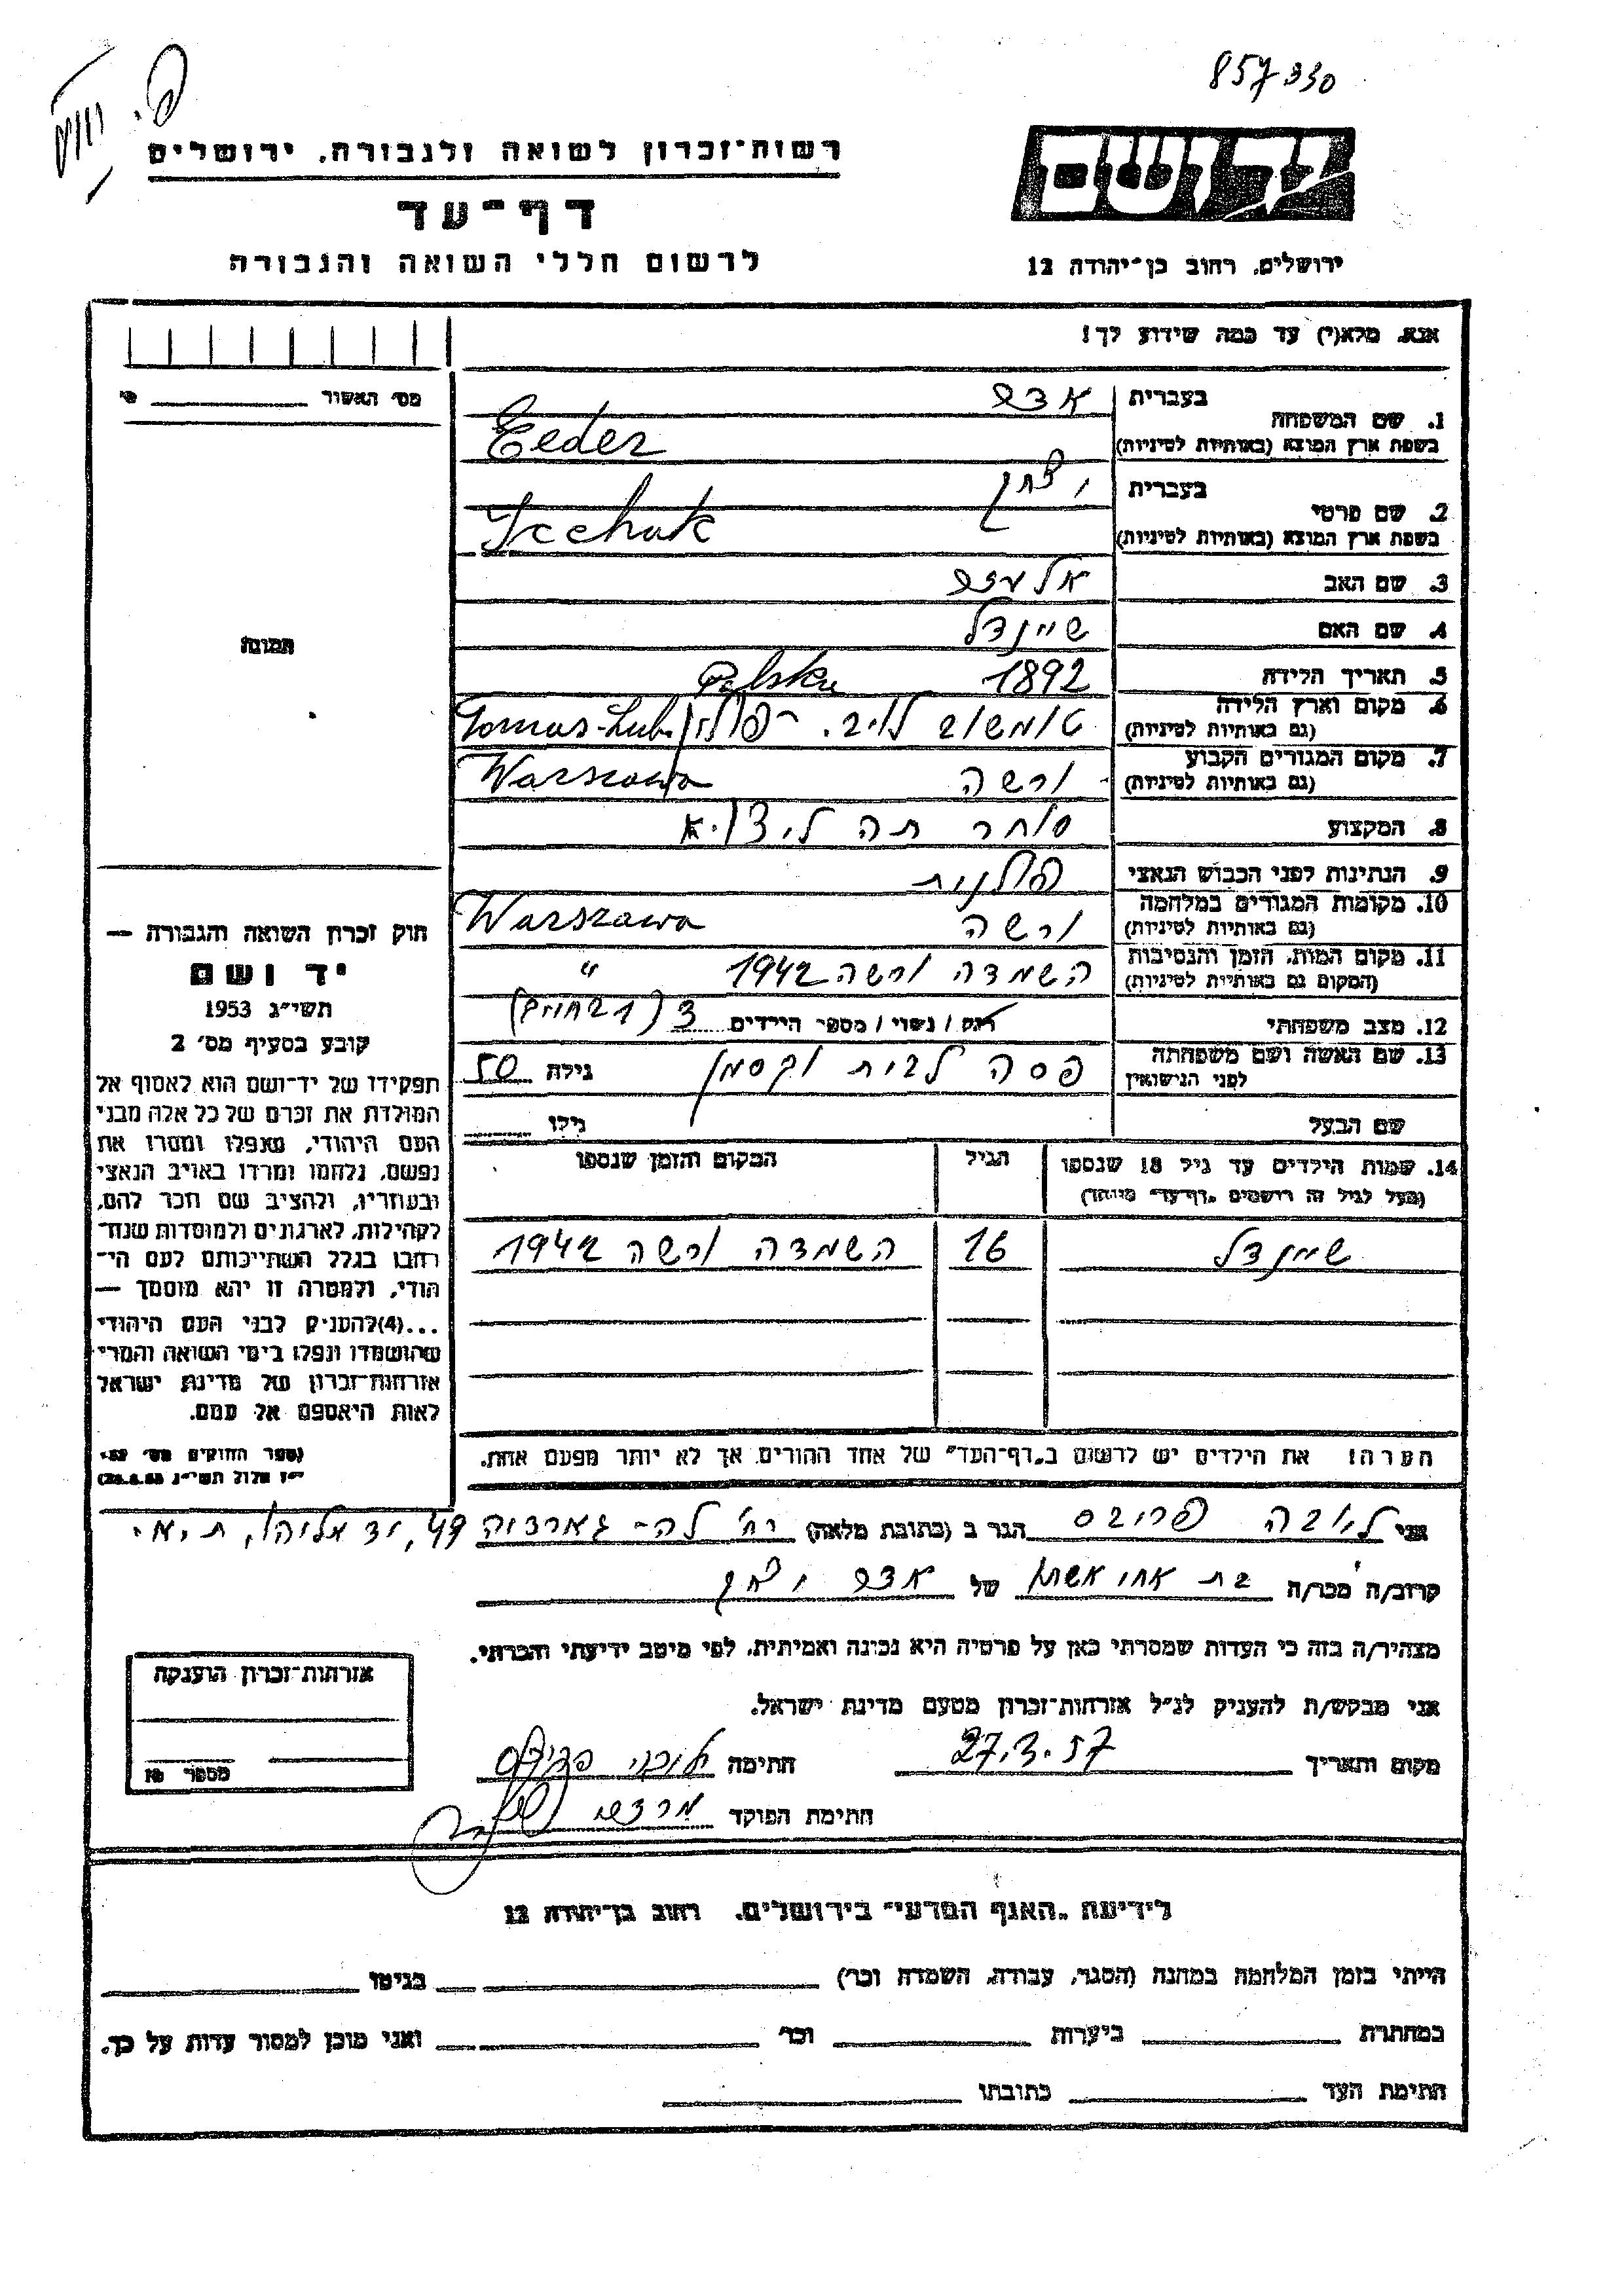 857330
רשות־זכרון לשואה ולגבורה, ירושלים
דף־עד
לרשום חללי השואה והגבורה
יד ושם
ירושלים, רחוב בן־יהודה 12
אנא, מלא(י) עד כמה שידוע לך!
מס׳ האשור
1. שם המשפחה
בעברית אדר
בשפת ארץ המוצא (באותיות לטיניות) Eeder
2. שם פרטי
בעברית יצחק
בשפת ארץ המוצא (באותיות לטיניות) Icchak
3. שם האב אלעזר
4. שם האם שיינדל
5. תאריך הלידה 1892
Polska
6. מקום וארץ הלידה
(גם באותיות לטיניות) טומשוב לוב. - פולין Tomas-Lub.
7. מקום המגורים הקבוע
(גם באותיות לטיניות) ורשה Warszawa
8. המקצוע סוחר תה
9. הנתינות לפני הכבוש הנאצי פולנית
10. מקומות המגורים במלחמה
(גם באותיות לטיניות) ורשה Warszawa
11. מקום המות, הזמן והנסיבות
(המקום גם באותיות לטיניות) השמדה ורשה 1942 "
12. מצב משפחתי רווק / נשוי / מספר הילדים 3
13. שם האשה ושם משפחתה
לפני הנישואין פסה לבית וקסמן גילה 50
שם הבעל גילו
14. שמות הילדים עד גיל 18 שנספו הגיל המקום והזמן שנספו
(מעל לגיל זה רושמים „דף־עד״ מיוחד)
שיינדל 16 השמדה ורשה 1942
הערה! את הילדים יש לרשום ב„דף־העד״ של אחד ההורים אך לא יותר מפעם אחת.
תמונה
חוק זכרון השואה והגבורה —
יד ושם
תשי״ג 1953
קובע בסעיף מס׳ 2
תפקידו של יד־ושם הוא לאסוף אל
המולדת את זכרם של כל אלה מבני
העם היהודי, שנפלו ומסרו את
נפשם, נלחמו ומרדו באויב הנאצי
ובעוזריו, ולהציב שם וזכר להם,
לקהילות, לארגונים ולמוסדות שנח־
רבו בגלל השתייכותם לעם הי־
הודי, ולמטרה זו יהא מוסמך —
...(4)להעניק לבני העם היהודי
שהושמדו ונפלו בימי השואה והמרי
אזרחות־זכרון של מדינת ישראל
לאות היאספם אל עמם.
אני ליובה פרויס הגר ב (כתובת מלאה) רח׳ לה-גארדיה 49, יד אליהו, ת״א
קרוב/ה מכר/ה בת אחי אשתו של אדר יצחק
מצהיר/ה בזה כי העדות שמסרתי כאן על פרטיה היא נכונה ואמיתית, לפי מיטב ידיעתי והכרתי.
אני מבקש/ת להעניק לנ״ל אזרחות־זכרון מטעם מדינת ישראל.
מקום ותאריך 27.3.57 חתימה
חתימת הפוקד
אזרחות־זכרון הוענקה
מספר
לידיעת „האגף המדעי״ בירושלים, רחוב בן־יהודה 12
הייתי בזמן המלחמה במחנה (הסגר, עבודה, השמדה וכו׳) בגיטו
במחתרת ביערות וכו׳ ואני מוכן למסור עדות על כך.
חתימת העד כתובתו